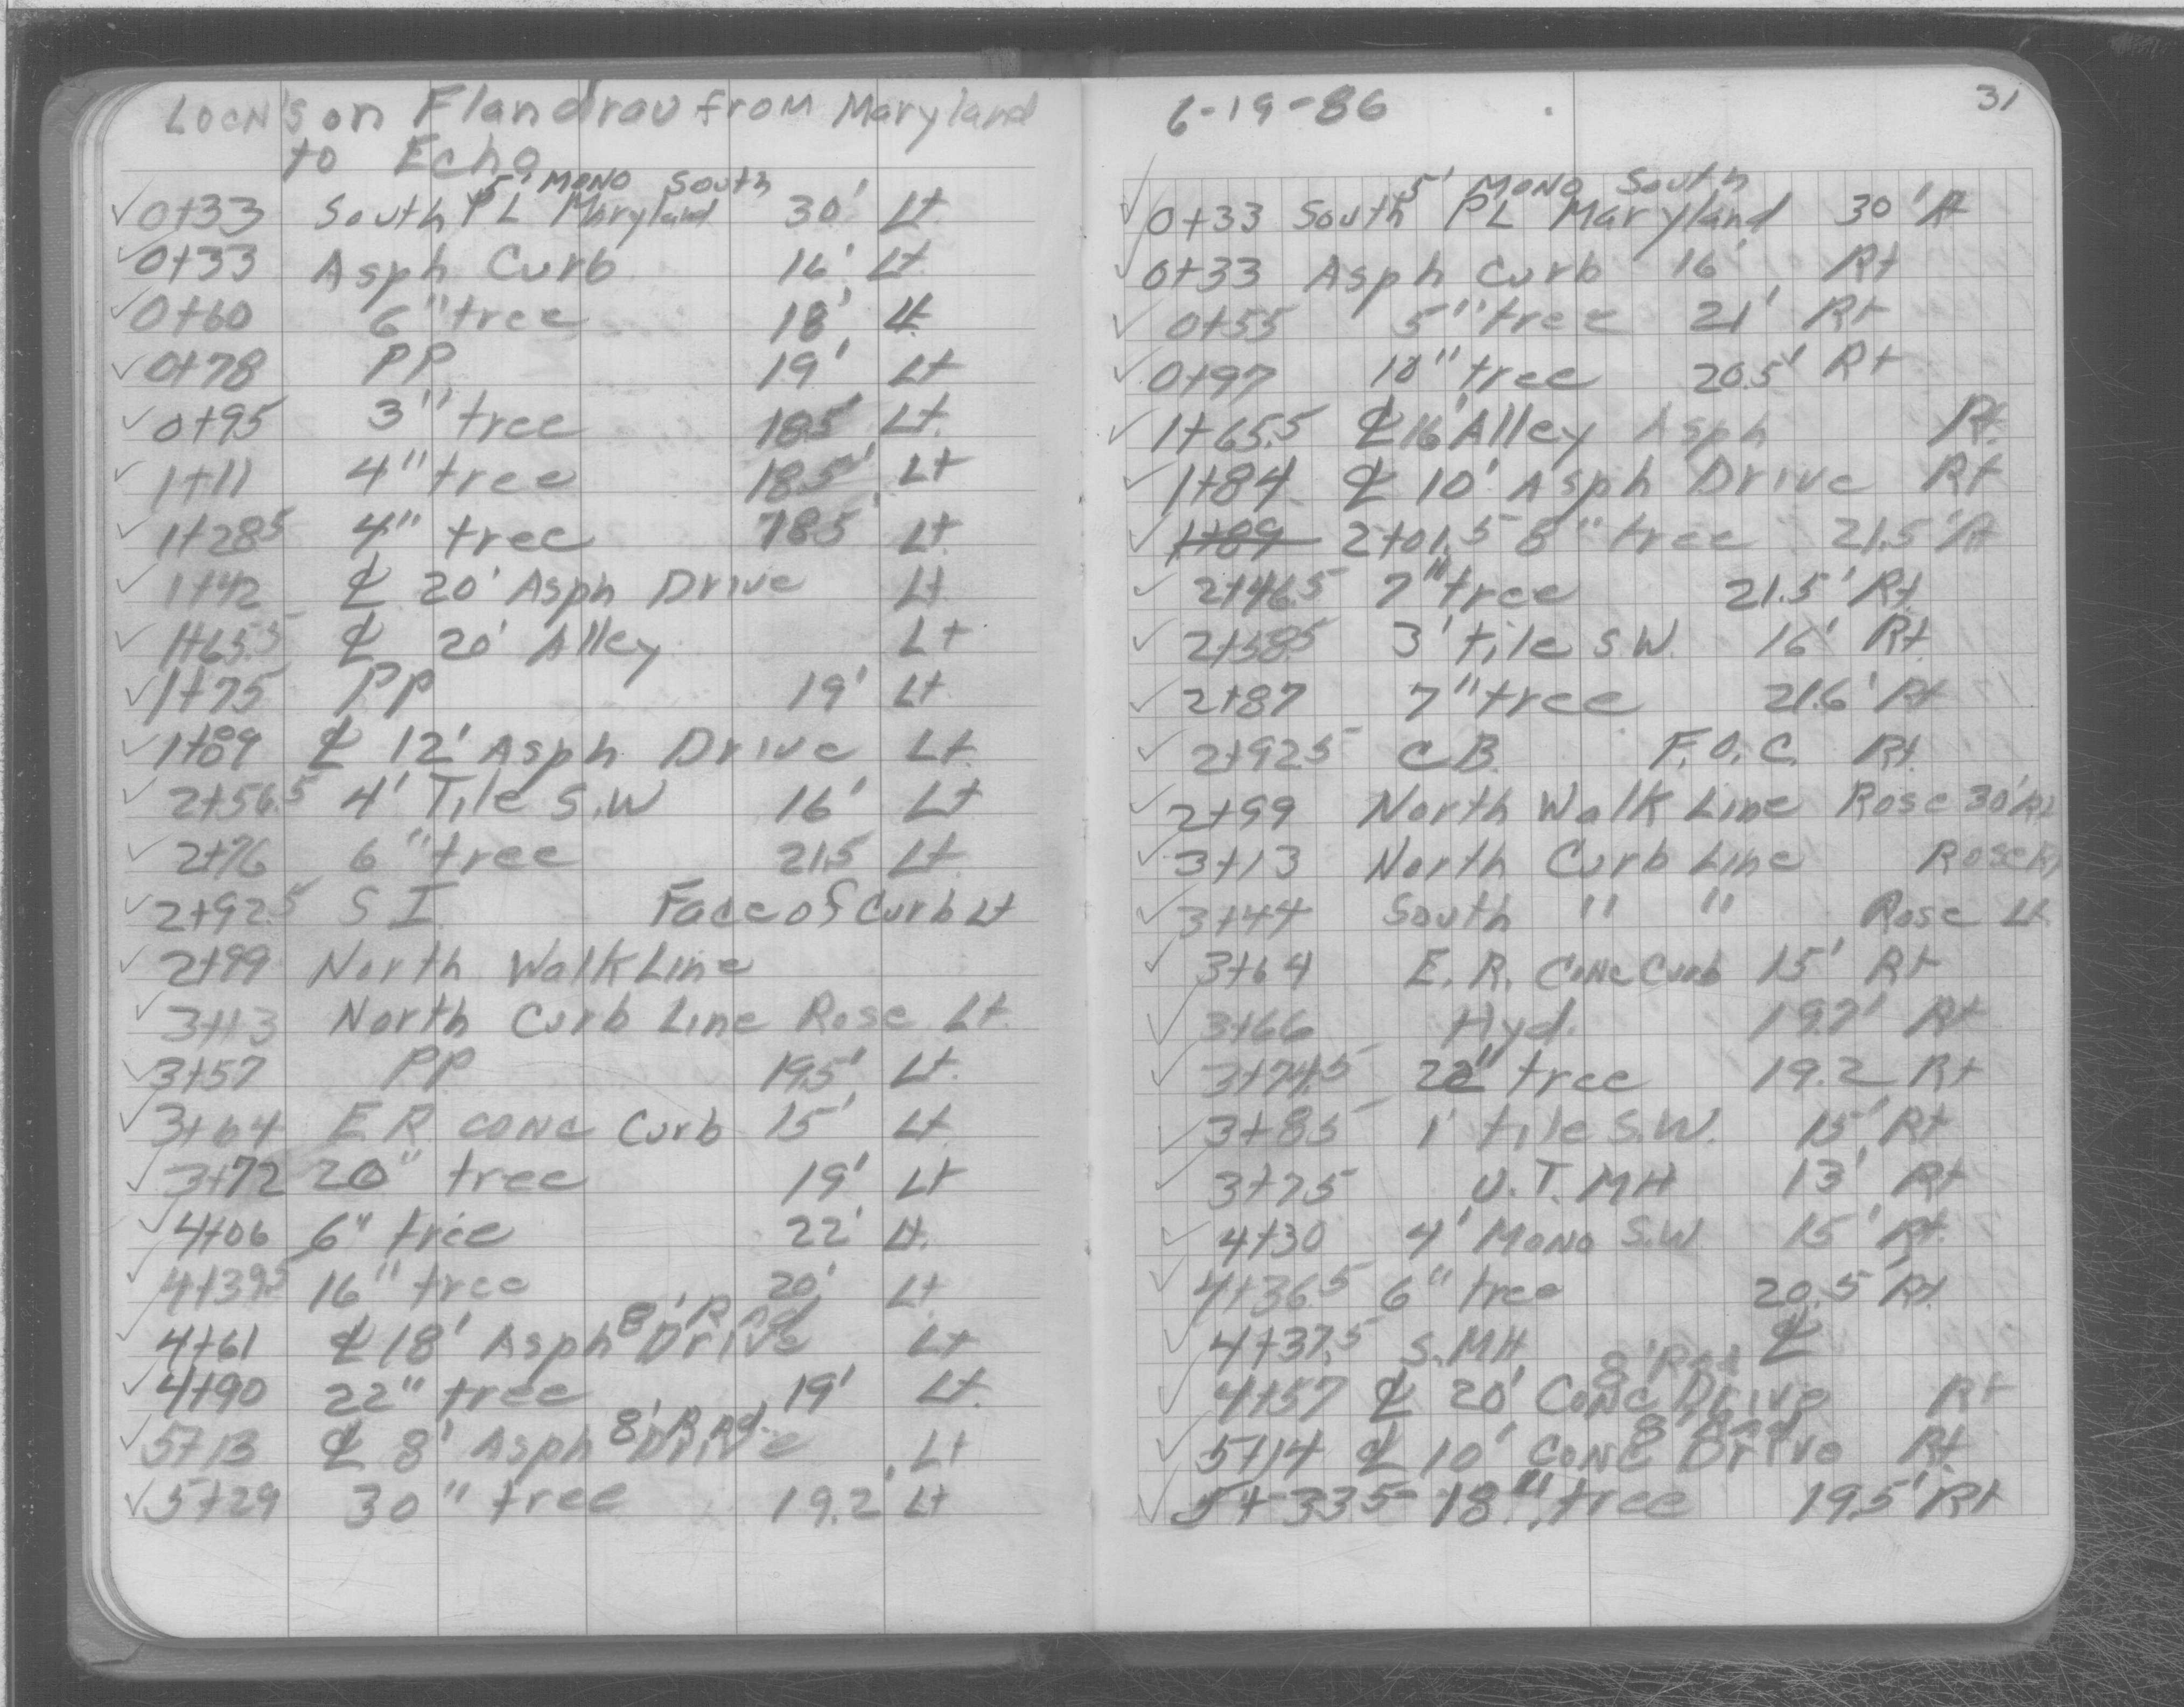 LOCN'S on Flandrau from Maryland
to Echo
5' MONO South
✓ 0+33 South PL Maryland 30' Lt
✓ 0+33 Asph Curb 16' Lt
✓ 0+60 6" tree 18' Lt
✓ 0+78 PP 19' Lt
✓ 0+95 3" tree 18.5' Lt.
✓ 1+11 4" tree 18.5' Lt
✓ 1+28.5 4" tree 18.5 Lt
✓ 1+42 ℄ 20' Asph Drive Lt
✓ 1+65.5 ℄ 20' Alley Lt
✓ 1+75 PP 19' Lt
✓ 1+89 ℄ 12' Asph Drive Lt
✓ 2+56.5 4' Tile S.W 16' Lt
✓ 2+76 6" tree 21.5 Lt
✓ 2+92.5 S I Face of Curb Lt
✓ 2+99 North Walk Line
✓ 3+13 North Curb Line Rose Lt
✓ 3+57 PP 19.5' Lt.
✓ 3+64 E R conc Curb 15' Lt
✓ 3+72 20" tree 19' Lt
✓ 4+06 6" tree 22' Lt.
✓ 4+39.5 16" tree 20' Lt
8' Rad
✓ 4+61 ℄ 18' Asph Drive Lt
✓ 4+90 22" tree 19' Lt
8' Rad.
✓ 5+13 ℄ 8' Asph Drive Lt
✓ 5+29 30" tree 19.2' Lt
6-19-86 31
5' MONO South
✓ 0+33 South PL Maryland 30' Rt
✓ 0+33 Asph Curb 16' Rt
✓ 0+55 5" tree 21' Rt
✓ 0+97 10" tree 20.5' Rt
✓ 1+65.5 ℄ 16' Alley Asph Rt.
✓ 1+84 ℄ 10' Asph Drive Rt
✓ 1+89 2+01.5 8" tree 21.5' Rt
✓ 2+46.5 7" tree 21.5' Rt
✓ 2+58.5 3' tile S.W. 16' Rt
✓ 2+87 7" tree 21.6' Rt
✓ 2+92.5 C.B. F.O.C. Rt.
✓ 2+99 North Walk Line Rose 30' Rt
✓ 3+13 North Curb Line Rose Rt
✓ 3+44 South " " Rose Lt
✓ 3+64 E.R. Conc Curb 15' Rt
✓ 3+66 Hyd. 19.7' Rt
✓ 3+74.5 22" tree 19.2 Rt
✓ 3+85 1' tile S.W. 15' Rt
✓ 3+75 U.T. MH 13' Rt
✓ 4+30 4' Mono S.W 15' Rt.
✓ 4+36.5 6" tree 20.5' Rt.
✓ 4+37.5 S.MH ℄
8' Rad
✓ 4+57 ℄ 20' Conc Drive Rt
8' Rad
✓ 5+14 ℄ 10' Conc Drive Rt
✓ 5+33.5 18" tree 19.5' Rt